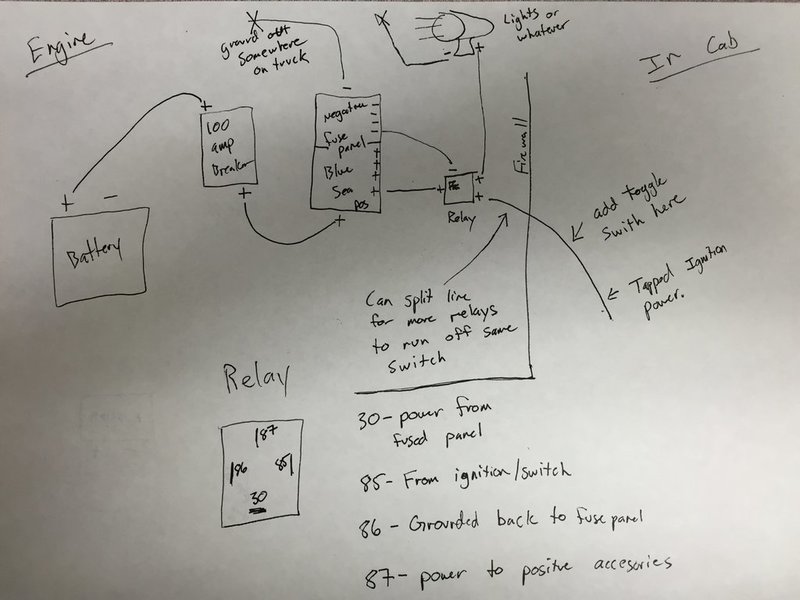 Engine
In Cab
Ground off
somewhere
on truck
Lights or
whatever
Firewall
100
amp
Breaker
Negative
fuse
panel
Blue
Sea
pos
Relay
Battery
add toggle
swith here
Tapped Ignition
power.
Can split line
for more relays
to run off same
switch
Relay
87
86 85
30
30 - power from
fused panel
85 - From ignition/switch
86 - Grounded back to fuse panel
87 - power to positive accesories